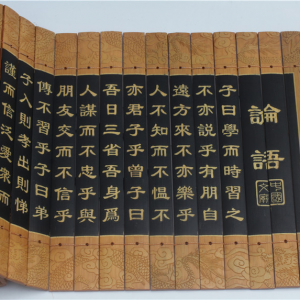 論語
中國文房
子曰學而時習之
不亦説乎有朋自
遠方來不亦樂乎
人不知而不愠不
亦君子乎曾子曰
吾日三省吾身爲
人謀而不忠乎與
朋友交而不信乎
傳不習乎子曰弟
子入則孝出則悌
謹而信汎愛衆而